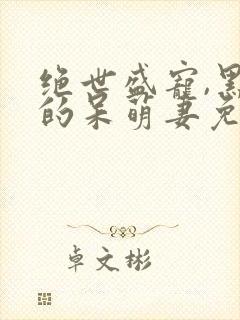 绝世盛宠,黑
的呆萌妻免
卓文彬